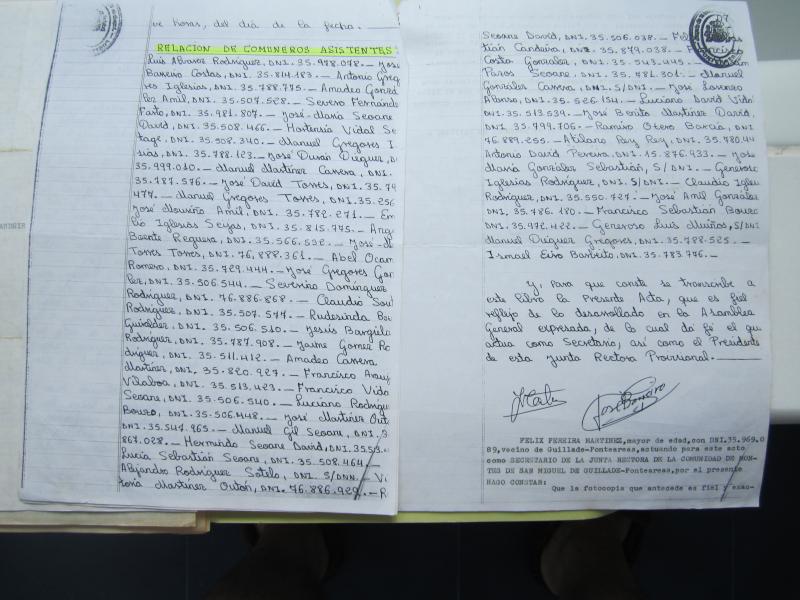 ve horas, del día de la fecha.
RELACION DE COMUNEROS ASISTENTES:
Luis Alvarez Rodríguez, DNI. 35.978.078.- José
Barreiro Costas, DNI. 35.814.183.- Antonio Greg
res Iglesias, DNI. 35.788.775.- Amadeo Gonzá
lez Amil, DNI. 35.507.528.- Severo Fernánde
Farto, DNI. 35.981.807.- José María Seoane
David, DNI. 35.508.466.- Hortensia Vidal Se
tage, DNI. 35.508.340.- Manuel Gregores I
sias, DNI. 35.788.123.- José Durán Duguer, D
35.999.010.- Manuel Martínez Carrera, DNI.
35.787.576.- José David Torres, DNI. 35.79
477.- Manuel Gregores Torres, DNI. 35.256
José Mouriño Amil, DNI. 35.782.271.- Em
lio Iglesias Seijas, DNI. 35.815.775.- Ang
Baente Reguera, DNI. 35.566.592.- José M
Torres Torres, DNI. 76.888.361.- Abel Ocam
Romero, DNI. 35.729.444.- José Gregores Gon
lez, DNI. 35.506.544.- Severino Domínguez
Rodríguez, DNI. 76.886.868.- Claudio Sou
Rodríguez, DNI. 35.507.577.- Ruderinda Bou
DNI. 35.506.510.- Jesús Bargiela
Rodríguez, DNI. 35.787.908.- Jaime Gomez Ro
dríguez, DNI. 35.511.412.- Amadeo Carrera
Martínez, DNI. 35.820.927.- Francisco Arauj
Vilaboa, DNI. 35.513.423.- Francisco Vida
Seoane, DNI. 35.506.540.- Luciano Rodrígue
Bouzo, DNI. 35.506.448.- José Martínez Out
DNI. 35.541.965.- Manuel Gil Seoane, DNI. 3
867.028.- Herminio Seoane David, DNI. 35.53
Lucía Sebastián Seoane, DNI. 35.508.464.-
Alejandro Rodríguez Sotelo, DNI. S/DNI.- Vi
toria Martínez Outón, DNI. 76.886.929.- R
07
Seoane David, DNI. 35.506.038.-
tián Candeira, DNI. 35.879.038.- Francisco
Costa González, DNI. 35.543.445.-
Paros Seoane, DNI. 35.781.301.- Manuel
González Carrera, DNI. S/DNI.- José Lorenzo
Alonso, DNI. 35.526.154.- Luciano David Vida
DNI. 35.513.539.- José Benito Martínez David,
DNI. 35.799.706.- Ramiro Otero Barcia, DNI
76.889.255.- Atilano Rey Rey, DNI. 35.780.44
Antonio David Pereira, DNI. 35.876.933.- José
María González Sebastián, S/DNI.- Generoso
Iglesias Rodríguez, DNI. S/DNI.- Claudio Igle
Rodríguez, DNI. 35.550.727.- José Amil González
DNI. 35.786.180.- Francisco Sebastián Bouzo
DNI. 35.972.422.- Generoso Luis Muiños, S/DNI
Manuel Duguez Gregores, DNI. 35.788.525.
Ismael Eiro Barbeito, DNI. 35.783.776.-
Y, para que conste se transcribe a
este libro la Presente Acta, que es fiel
reflejo de lo desarrollado en la Asamblea
General expresada, de lo cual da fé el qu
actua como Secretario, así como el Presidente
de esta Junta Rectora Provisional.-
FELIX PEREIRA MARTINEZ, mayor de edad, con DNI.35.969.0
89, vecino de Guillade-Ponteareas, actuando para este acto
como SECRETARIO DE LA JUNTA RECTORA DE LA COMUNIDAD DE MON-
TES DE SAN MIGUEL DE GUILLADE-Ponteareas, por el presente
HAGO CONSTAR:
Que la fotocopia que antecede es fiel y exac-